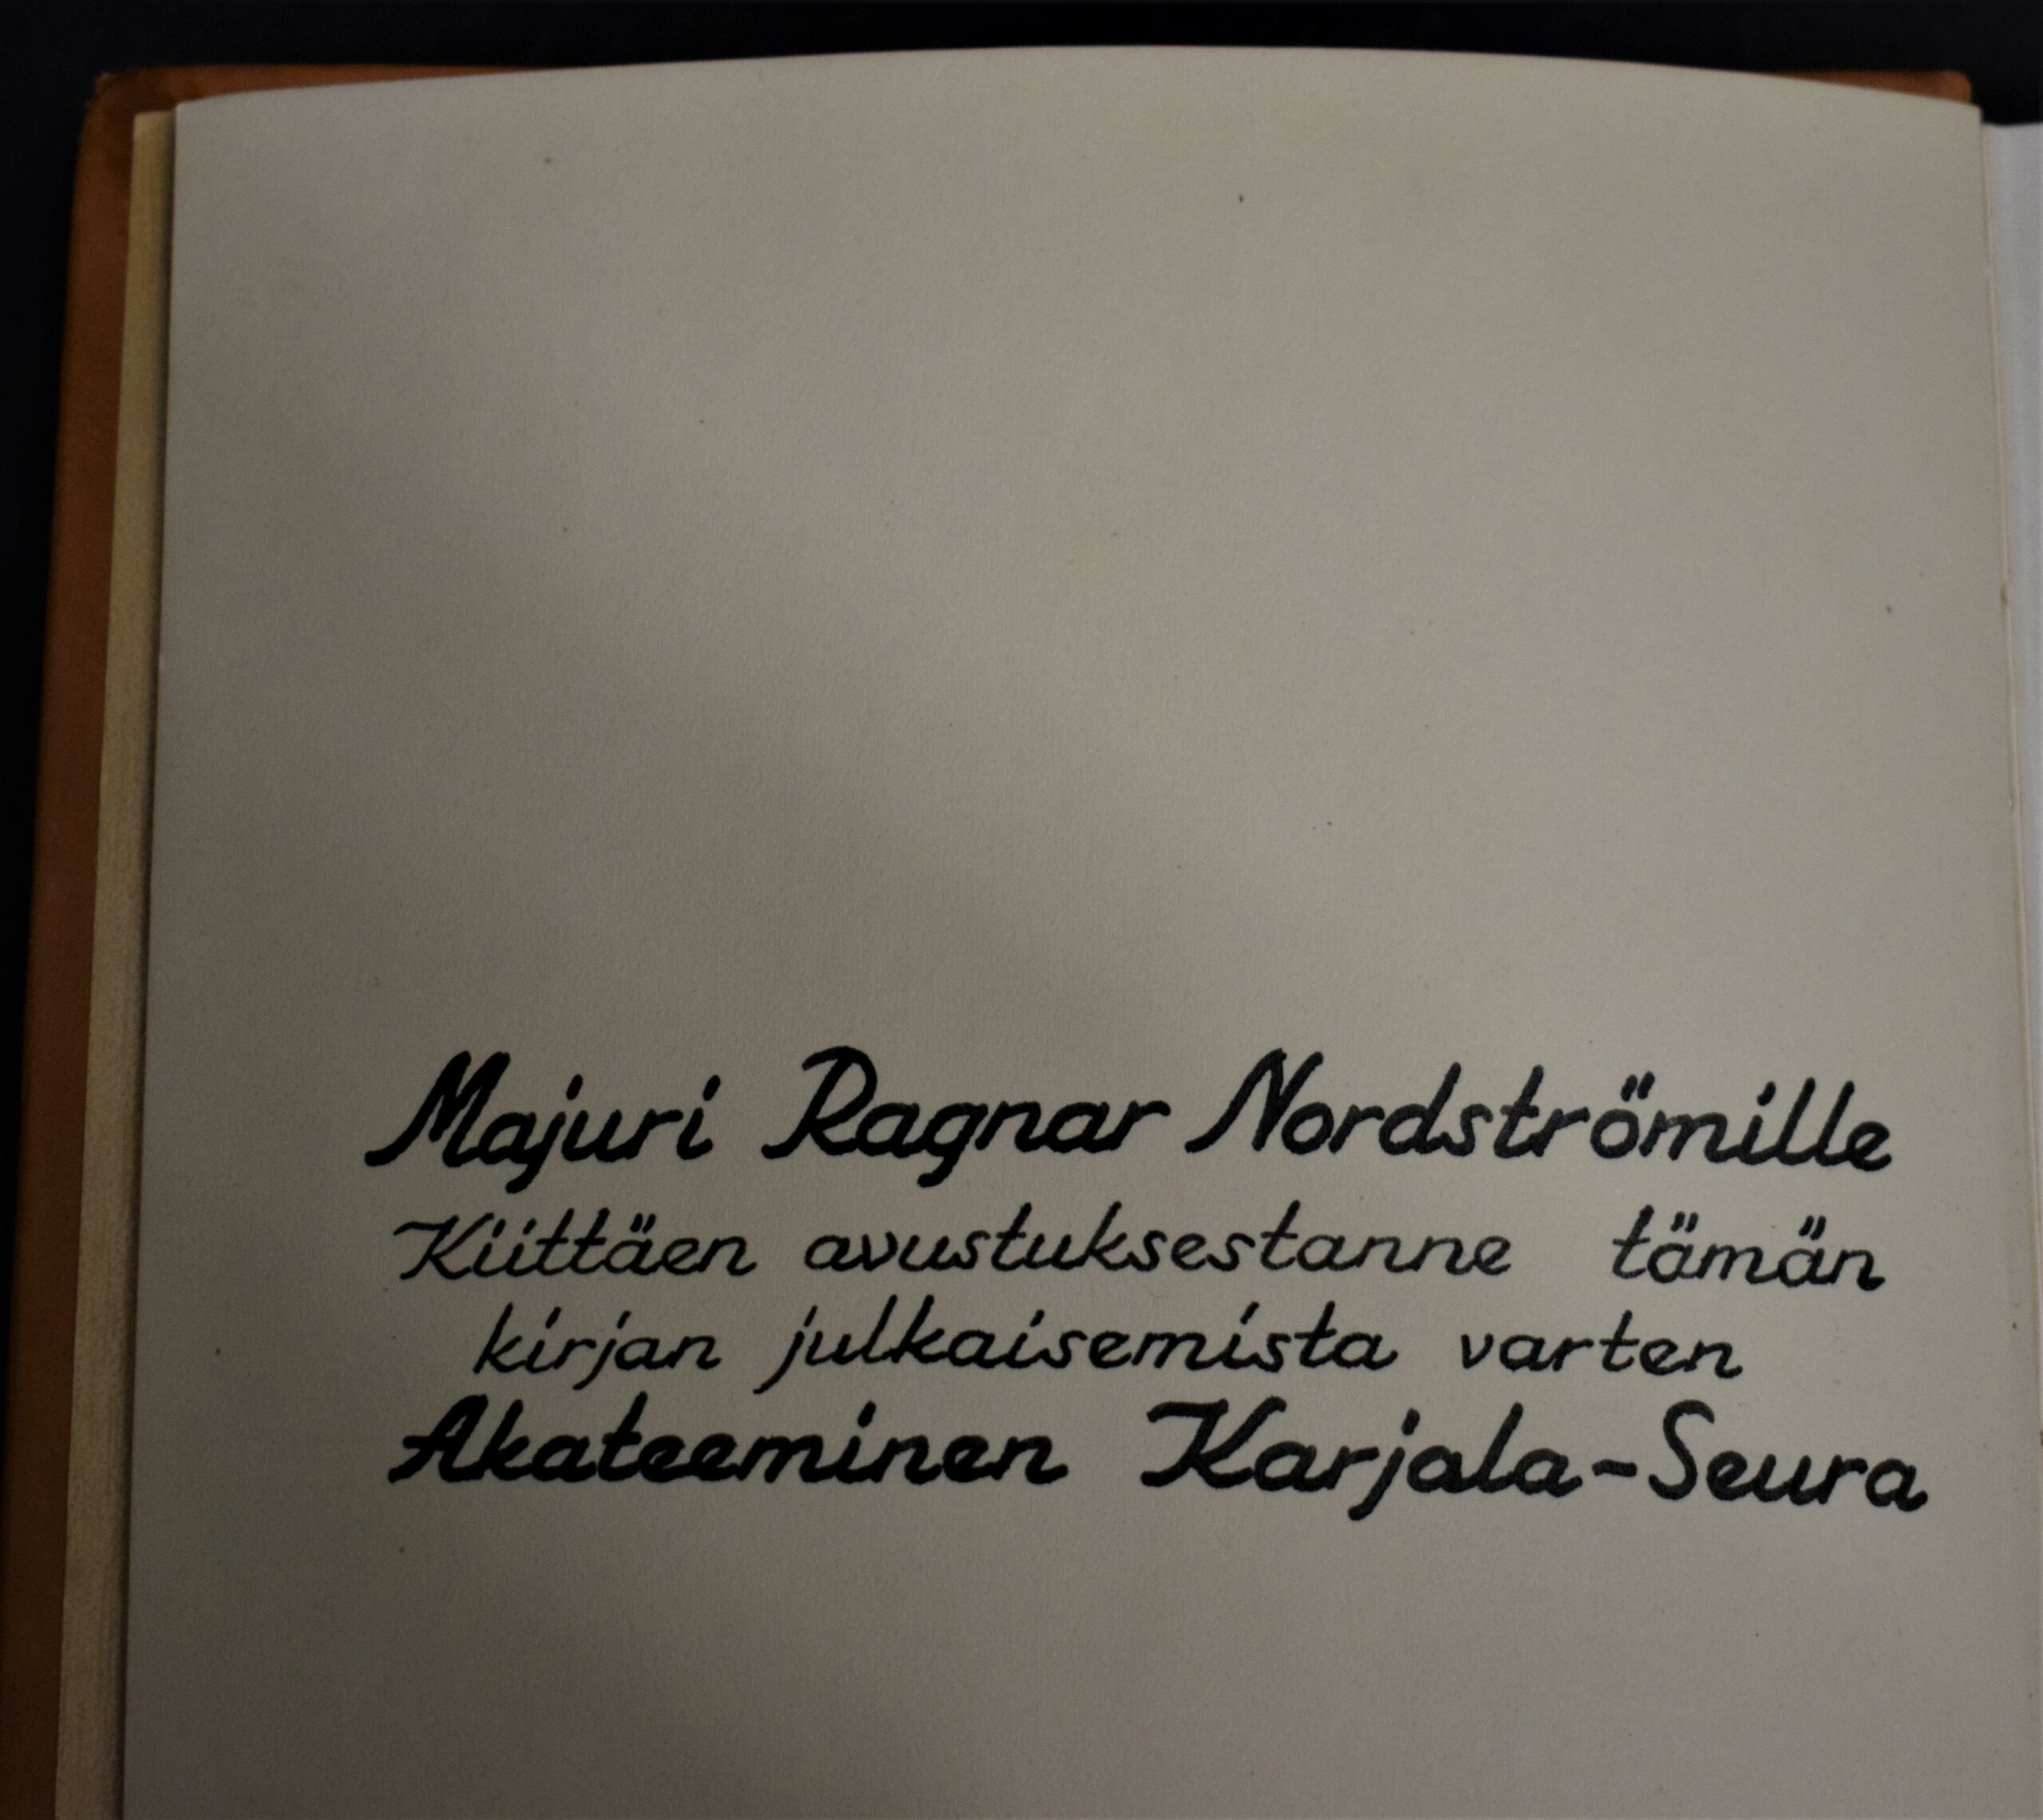 Majuri Ragnar Nordströmille
Kiittäen avustuksestanne tämän
kirjan julkaisemista varten
Akateeminen Karjala-Seura